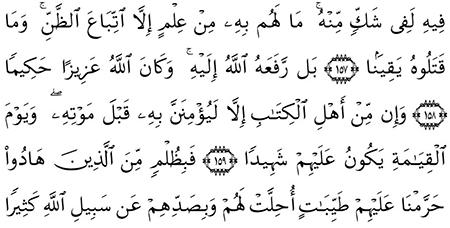 فِيهِ لَفِى شَكٍّ مِّنْهُ ۚ مَا لَهُم بِهِۦ مِنْ عِلْمٍ إِلَّا ٱتِّبَاعَ ٱلظَّنِّ ۚ وَمَا
قَتَلُوهُ يَقِينًۢا ﴿١٥٧﴾ بَل رَّفَعَهُ ٱللَّهُ إِلَيْهِ ۚ وَكَانَ ٱللَّهُ عَزِيزًا حَكِيمًا
﴿١٥٨﴾ وَإِن مِّنْ أَهْلِ ٱلْكِتَٰبِ إِلَّا لَيُؤْمِنَنَّ بِهِۦ قَبْلَ مَوْتِهِۦ ۖ وَيَوْمَ
ٱلْقِيَٰمَةِ يَكُونُ عَلَيْهِمْ شَهِيدًا ﴿١٥٩﴾ فَبِظُلْمٍ مِّنَ ٱلَّذِينَ هَادُوا۟
حَرَّمْنَا عَلَيْهِمْ طَيِّبَٰتٍ أُحِلَّتْ لَهُمْ وَبِصَدِّهِمْ عَن سَبِيلِ ٱللَّهِ كَثِيرًا